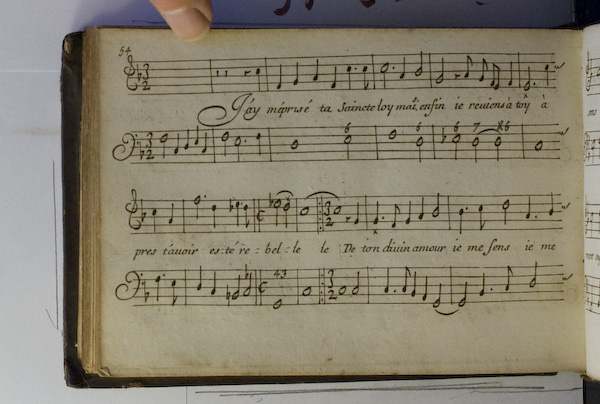 54
J'ay méprisé ta saincte loy mais enfin ie reuiens à toy à
6 6 6 7 6
pres t'auoir es:té re:bel:le le De ton diuin amour ie me sens ie me
43